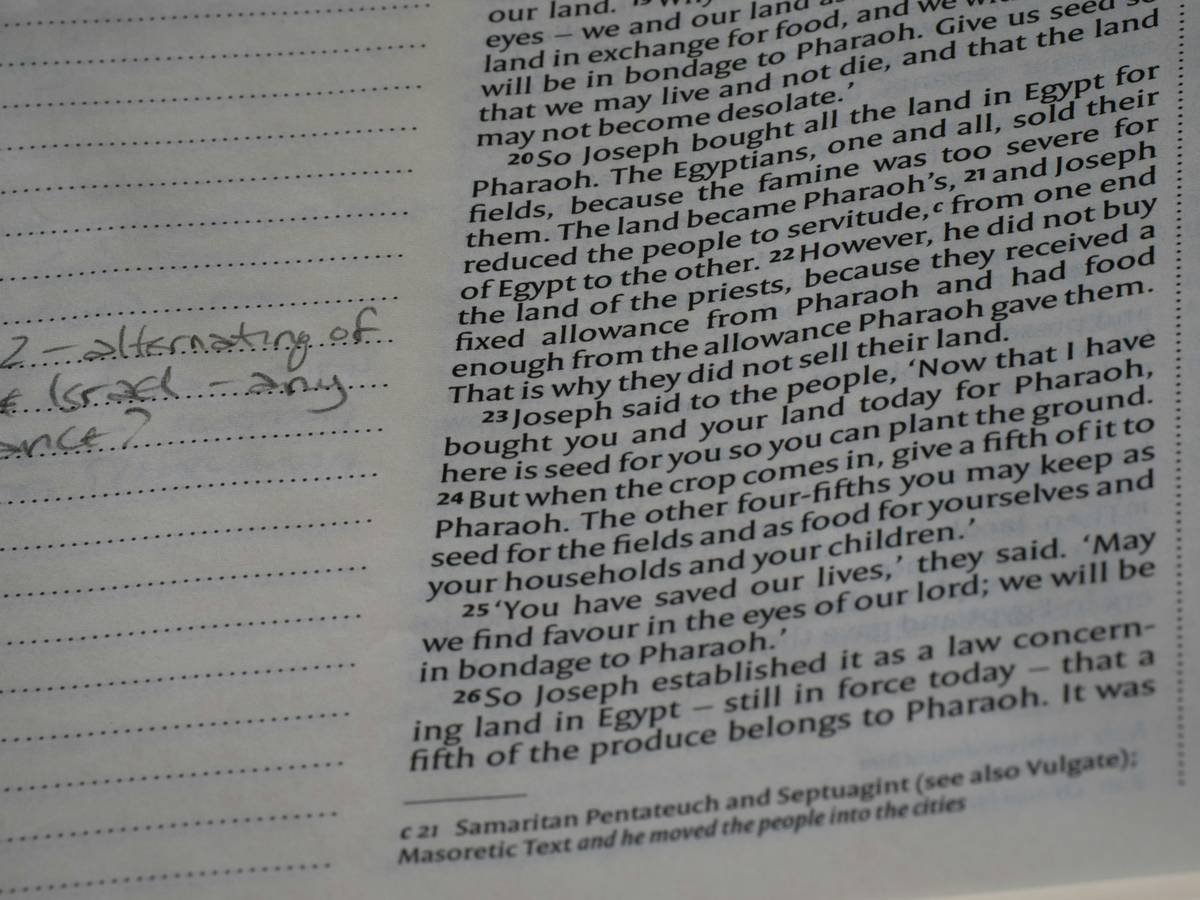 2 – alternating of
Israel – any
ance?
our land.
eyes – we and our land
land in exchange for food, and we
will be in bondage to Pharaoh. Give us seed
that we may live and not die, and that the land
may not become desolate.’
20 So Joseph bought all the land in Egypt for
Pharaoh. The Egyptians, one and all, sold their
fields, because the famine was too severe for
them. The land became Pharaoh’s, 21 and Joseph
reduced the people to servitude,c from one end
of Egypt to the other. 22 However, he did not buy
the land of the priests, because they received a
fixed allowance from Pharaoh and had food
enough from the allowance Pharaoh gave them.
That is why they did not sell their land.
23 Joseph said to the people, ‘Now that I have
bought you and your land today for Pharaoh,
here is seed for you so you can plant the ground.
24 But when the crop comes in, give a fifth of it to
Pharaoh. The other four-fifths you may keep as
seed for the fields and as food for yourselves and
your households and your children.’
25 ‘You have saved our lives,’ they said. ‘May
we find favour in the eyes of our lord; we will be
in bondage to Pharaoh.’
26 So Joseph established it as a law concern-
ing land in Egypt – still in force today – that a
fifth of the produce belongs to Pharaoh. It was
c 21 Samaritan Pentateuch and Septuagint (see also Vulgate);
Masoretic Text and he moved the people into the cities